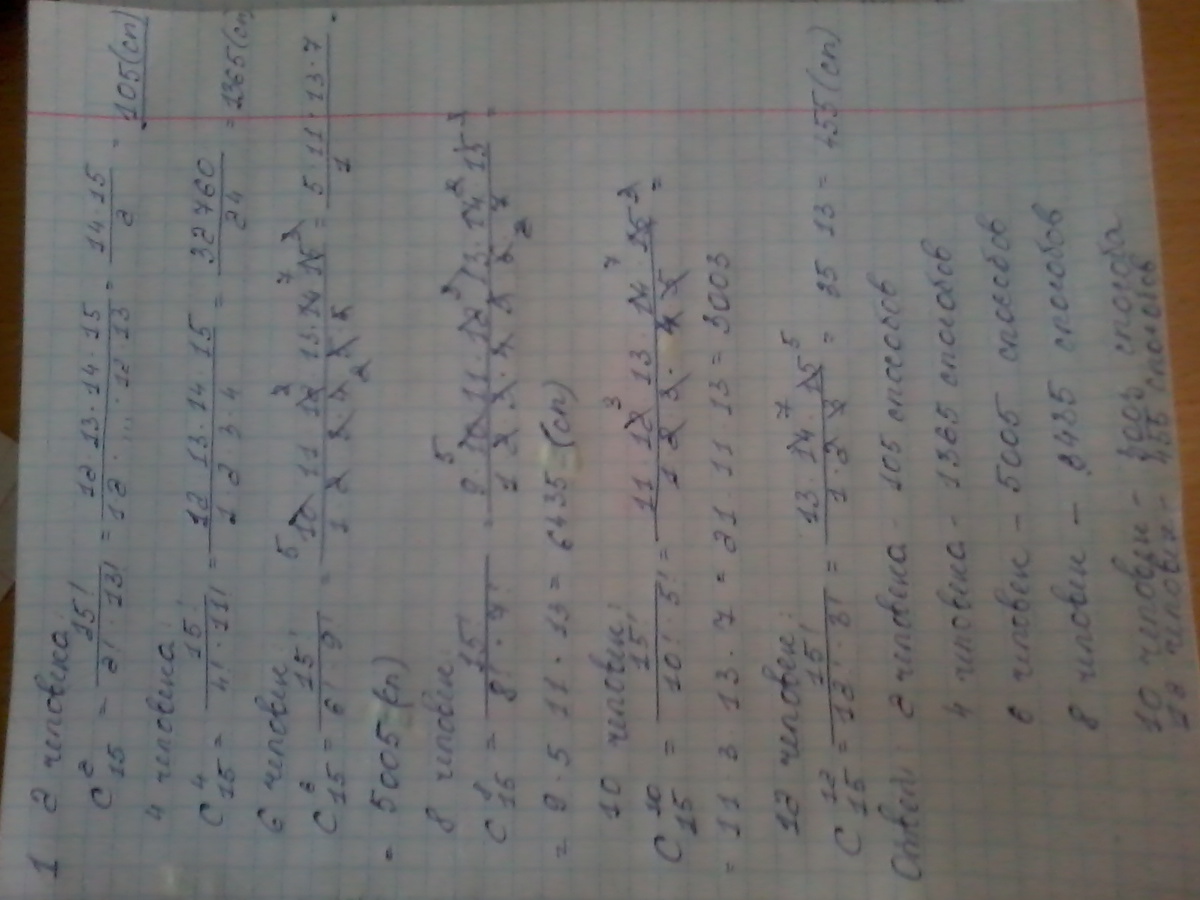 1 2 человека:
C 2 15 = 15! / 2! · 13! = 12 13 · 14 · 15 / 1 2 · ... · 12 13 = 14 · 15 / 2 = 105 (сп)
4 человека
C 4 15 = 15! / 4! · 11! = 12 13 · 14 · 15 / 1 · 2 · 3 · 4 = 32760 / 24 = 1365 (сп)
6 человек:
= 15! / 6! · 9! = 10 11 12 13 · 14 15 / 1 2 = 5 · 11 · 13 · 7 / 1
= 5005 (сп)
8 человек
15 = 15! / 8! · 7! = 9 · 10 · 11 · 12 13 14 15 / 1 2 3 =
= 9 · 5 11 · 13 = 6435 (сп)
10 человек:
C 10 15 = 15! / 10! · 5! = 11 12 13 · 14 15 / 1 2 3 · 4 5 =
= 11 3 · 13 · 7 = 21 · 11 · 13 = 3003
12 человек:
C 12 15 = 15! / 12! · 3! = 13 · 14 · 15 / 1 · 2 3 = 35 13 = 455 (сп)
Ответ: 2 человека - 105 способов
4 человека - 1365 способов
6 человек - 5005 способов
8 человек - способов
10 человек - 3003 способа
12 человек - 455 способов